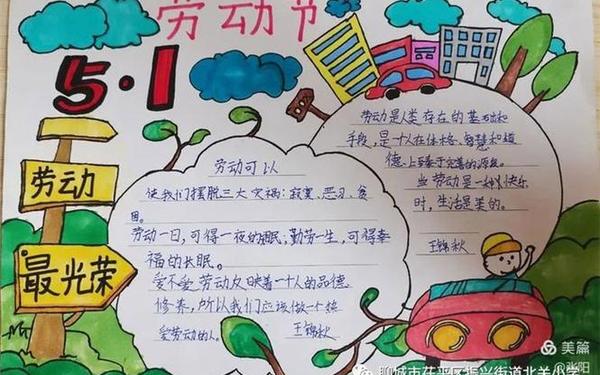 劳动节
5·1
劳动
最光荣
劳动可以
使我们摆脱三大灾祸：寂寞、恶习、贫
困。
劳动一日，可得一夜的安眠；勤劳一生，可得幸
福的长眠。
爱不爱劳动反映着一个人的品德
修养，所以我们应该做一个热
爱劳动的人。
王锦秋
劳动是人类存在的基础和
手段，是一个人在体格、智慧和道
德上臻于完善的源泉。
当劳动是一种快乐
时，生活是美的。
王锦秋
美篇
@张阳
聊城市茌平区振兴街道北关小学